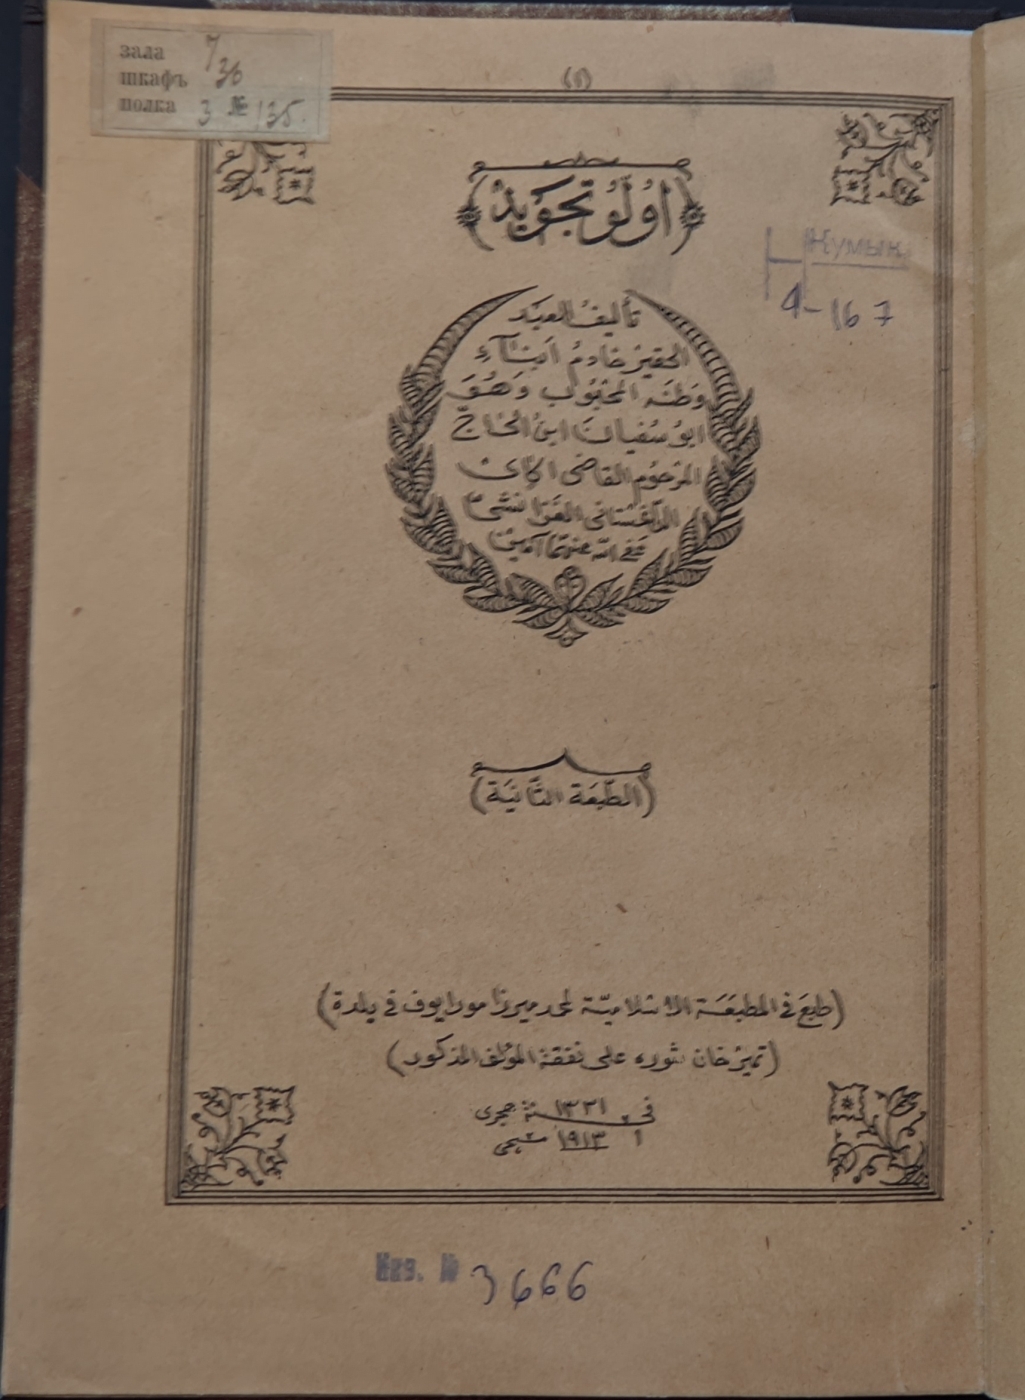 зала 7
шкафъ 36
полка 3 № 135.
(١)
اوُلوُ تجَوْيدْ
Кумык
4-167
تأليفُ العبَد
الحقيرْ خادمُ ابَنْآءِ
وَطنَه المحْبوُب وَهُوَ
ابوُ سُفيانَ ابنُ الحَاجّ
المَرْحوُم القاضى اكآىْ
الدّاغسْتانى الغَزانشىُّ
عَفى اللّه عنهمَا آمينْ
(الطبَعَة الثّانيَة)
(طبعَ فى المطبَعَة الاسْلاميّة لمحمد ميرزا مورايوف فى بلدة)
(تميرْخان شوره على نفقة المؤلف المذكور)
فى ١٣٣١ سنة هجرى
١٩١٣
Инв. № 3666